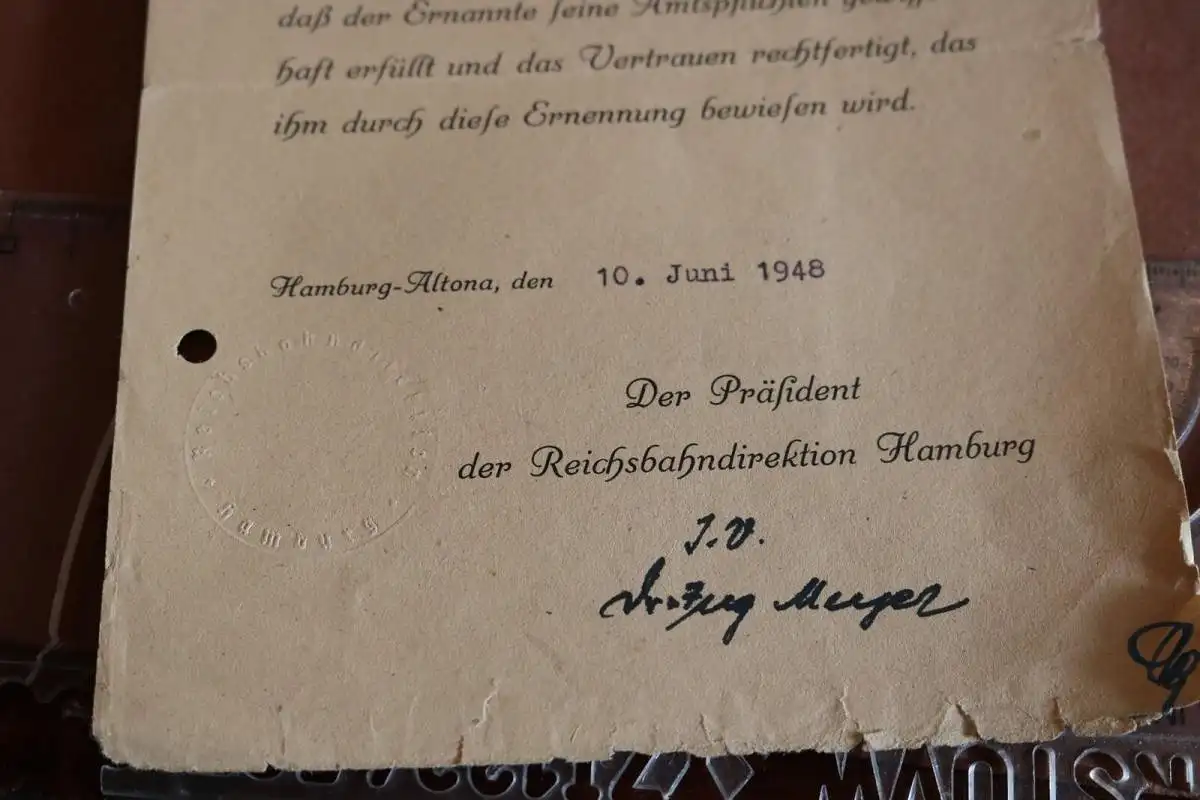 daß der Ernannte ſeine Amtspflichten
haft erfüllt und das Vertrauen rechtfertigt, das
ihm durch dieſe Ernennung bewieſen wird.
Hamburg-Altona, den 10. Juni 1948
Reichsbahndirektion
Hamburg
Der Präſident
der Reichsbahndirektion Hamburg
I.V.
Dr.-Ing Meyer